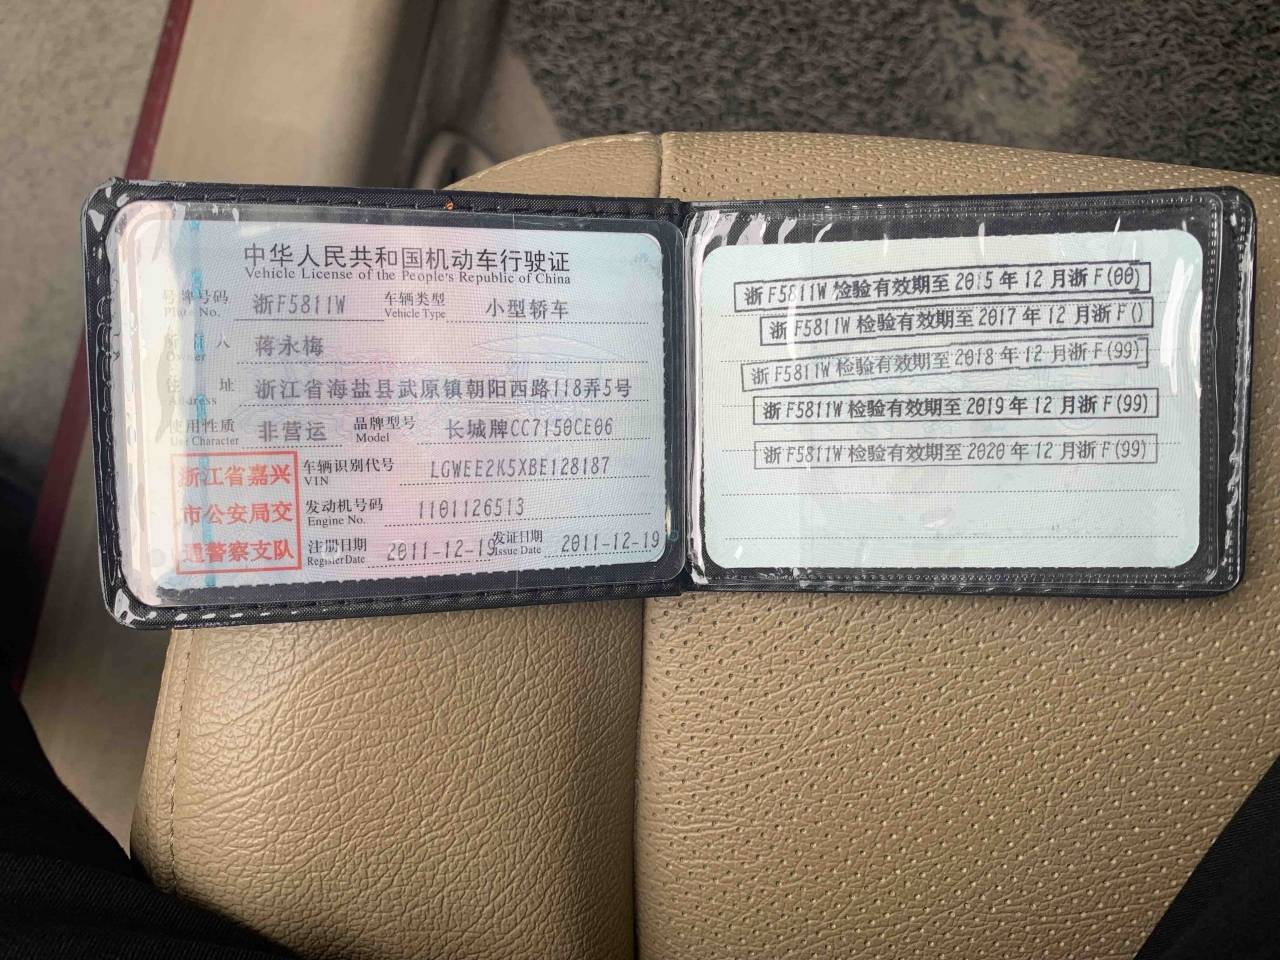 中华人民共和国机动车行驶证
Vehicle License of the People's Republic of China
号牌号码 浙F5811W 车辆类型 小型轿车
Plate No. Vehicle Type
所有人 蒋永梅
Owner
住址 浙江省海盐县武原镇朝阳西路118弄5号
Address
使用性质 非营运 品牌型号 长城牌CC7150CE06
Use Character Model
浙江省嘉兴
市公安局交
通警察支队
车辆识别代号 LGWEE2K5XBE128187
VIN
发动机号码 1101126513
Engine No.
注册日期 2011-12-19 发证日期 2011-12-19
Register Date Issue Date
浙F5811W 检验有效期至 2015 年 12 月浙 F(00)
浙F5811W 检验有效期至 2017 年 12 月浙 F()
浙F5811W 检验有效期至 2018 年 12 月浙 F(99)
浙F5811W 检验有效期至 2019 年 12 月浙 F(99)
浙F5811W 检验有效期至 2020 年 12 月浙 F(99)